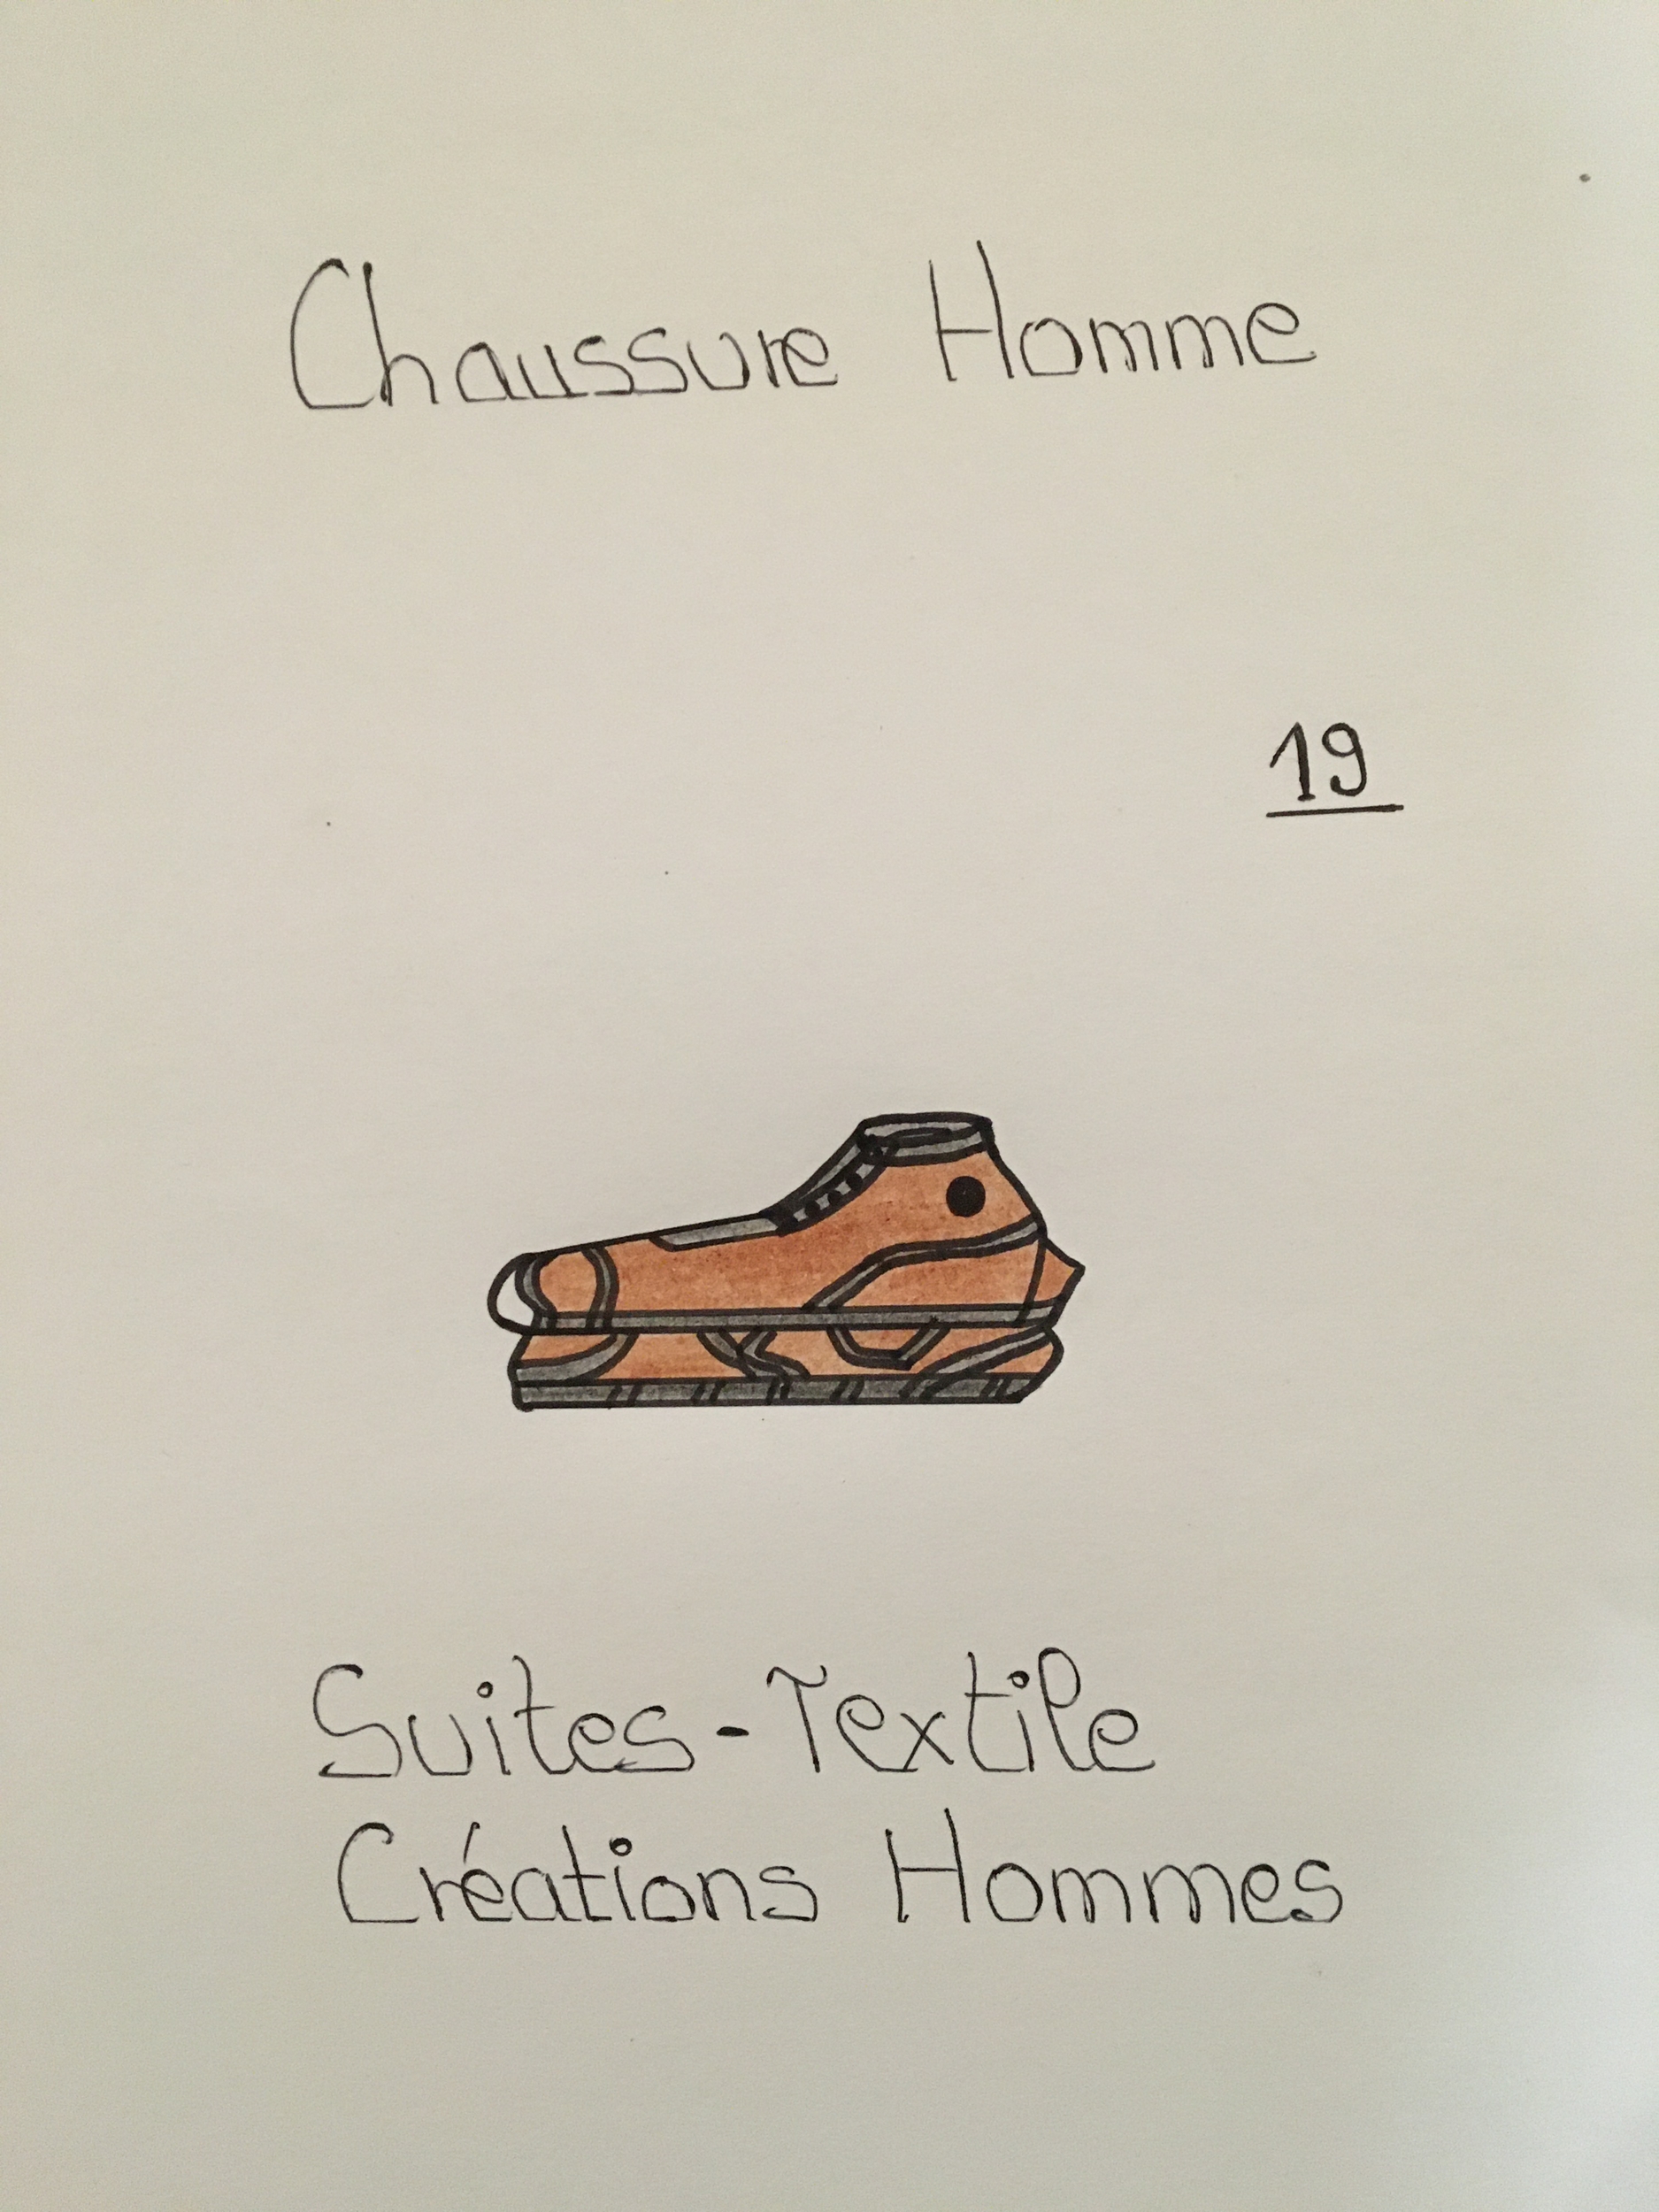 Chaussure Homme
19
Suites-Textile
Créations Hommes